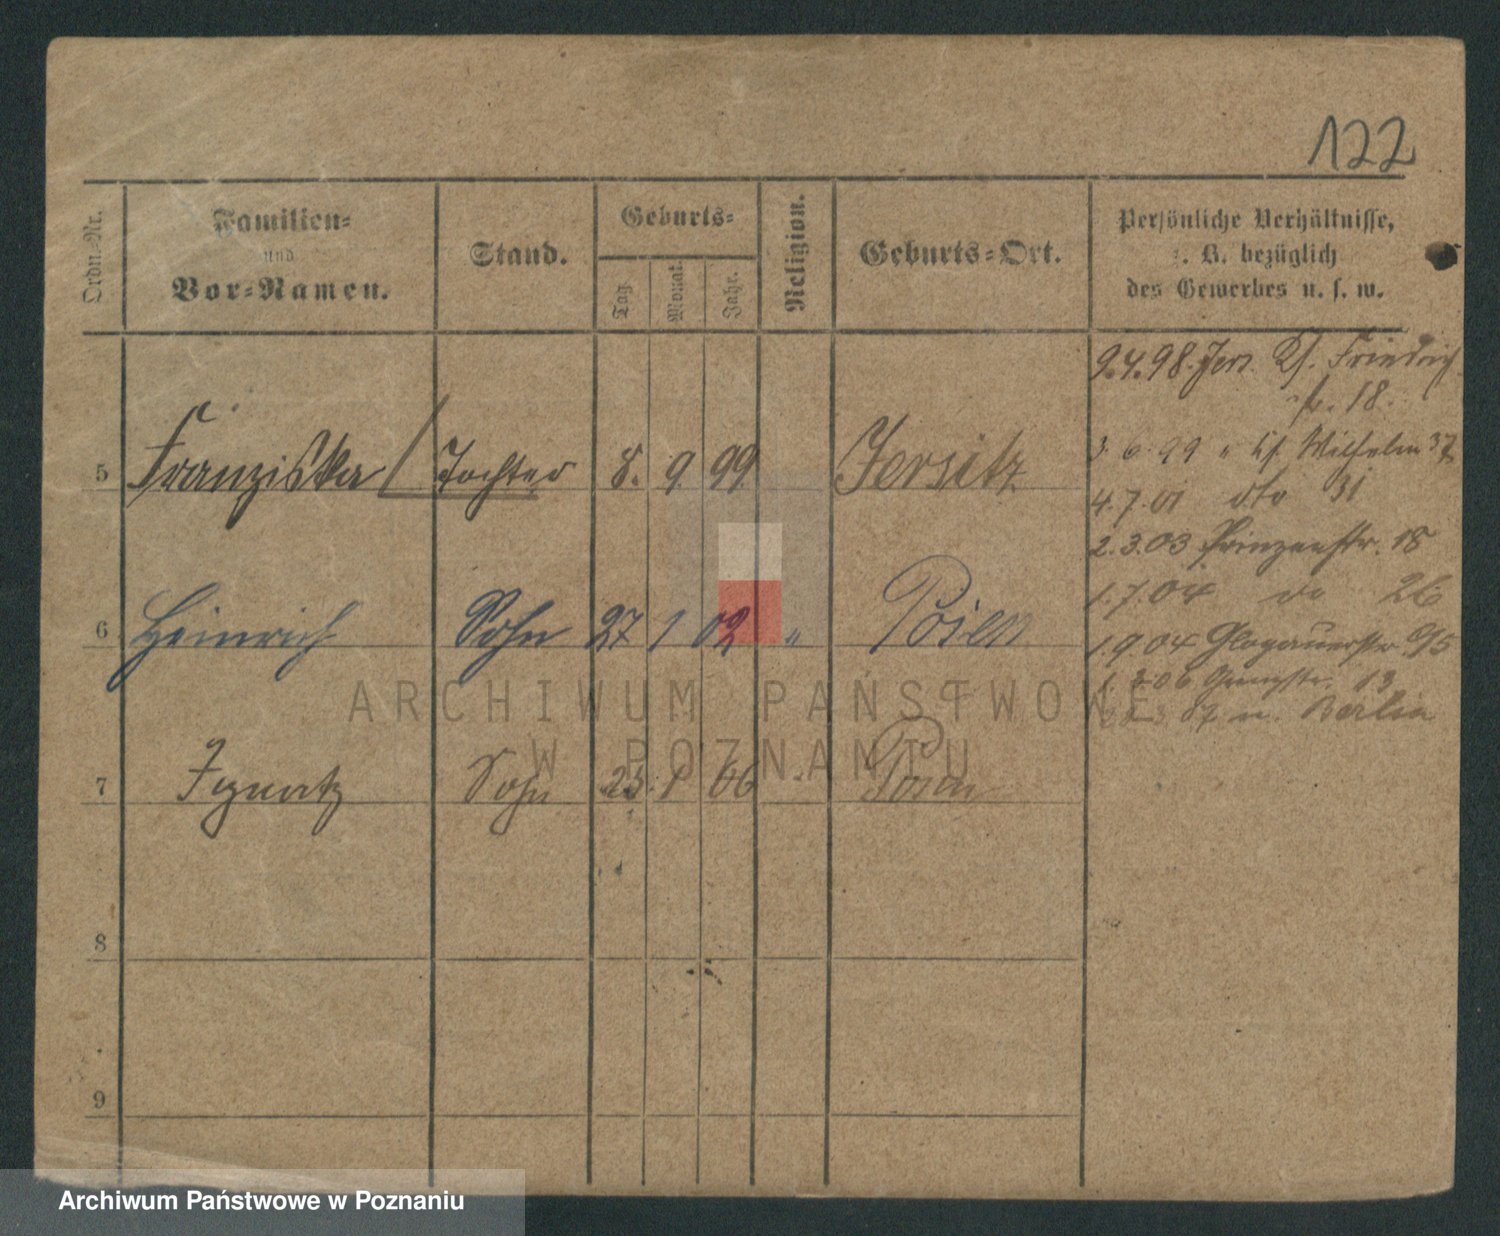 122
Ordn.-Nr.
Familien-
und
Vor-Namen.
Stand.
Geburts-
Tag.
Monat.
Jahr.
Religion.
Geburts-Ort.
Persönliche Verhältnisse,
z. B. bezüglich
des Gewerbes u. s. w.
5 Franziska Tochter 8. 9 99 Jersitz
6 Heinrich Sohn 27 1 02 " Posen
7 Ignatz Sohn 23 1 06 Posen
8
9
9.4.98. Jers. Friedrich
18.
3.6.99 " Wilhelm 37
4.7.01 dto 31
2.3.03 Prinzenstr. 18
1.7.04 do 26
1.9.04 Glogauerstr 95
06 13
07 n. Berlin
ARCHIWUM PAŃSTWOWE
W POZNANIU
Archiwum Państwowe w Poznaniu